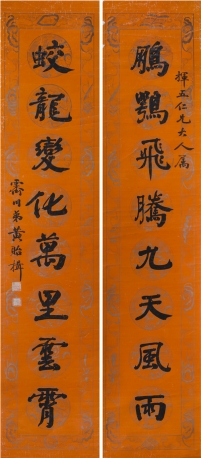 揮五仁九大人屬
鵬鶚飛騰九天風雨
蛟龍變化萬里雲霄
霽川弟黃貽楫